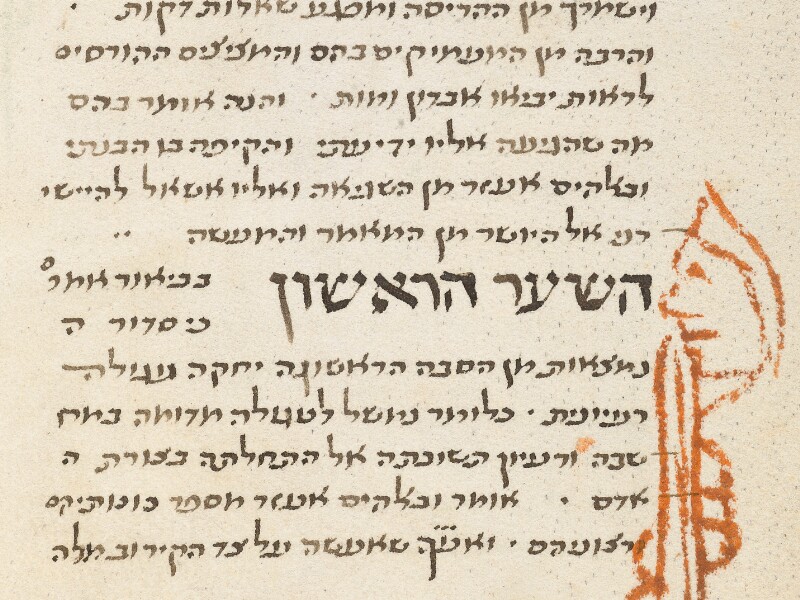 וישמרך מן ההריסה ומטבע שאלות דקות
והרבה מן המעמיקים בהם והמציצים ההורסים
לראות יביאו אבדון ומות · והנה אומר בהם
מה שהגיעה אליו ידיעתי והקיפה בו הבנתי
ובאלהים אעזר מן השגיאה ואליו אשאל להיישי
רני אל היושר מן המאמר והמעשה
השער הראשון בביאור אמר׳
כי סדור ה
נמצאות מן הסבה הראשונה יחקה עגולה
רעיונית · כלומר נמשל לעגולה מדומה במח
שבה ורעיון תשובתה אל התחלתה בצורת ה
אדם · אומר ובאלהים אעזר מספר כונותיקם
ורצועקם · ואע״ה שאעשה על צד הקירוב מלה